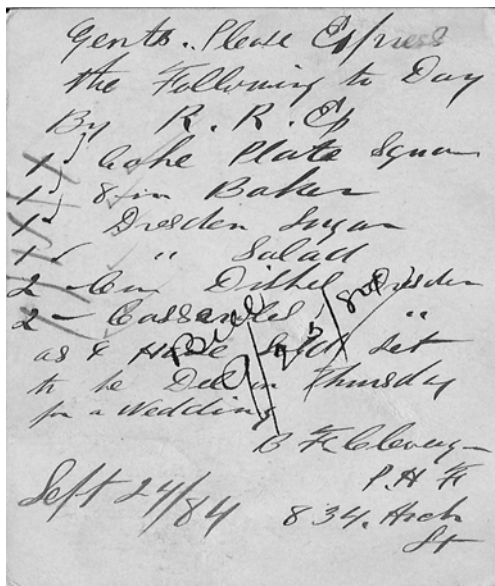 Gents. Please Express
the Following to Day
By R. R. Ex
1 Cake Plate Square
1 8 in Baker
1 Dresden Sugar
1 " Salad
2 Cov Dishes Dresden
2 - Casseroles "
as I Have Sold Set
to be Del in Thursday
for a Wedding
Billed
9/25/84
B F
P. H. F
Sept 24/84 834. Arch
St